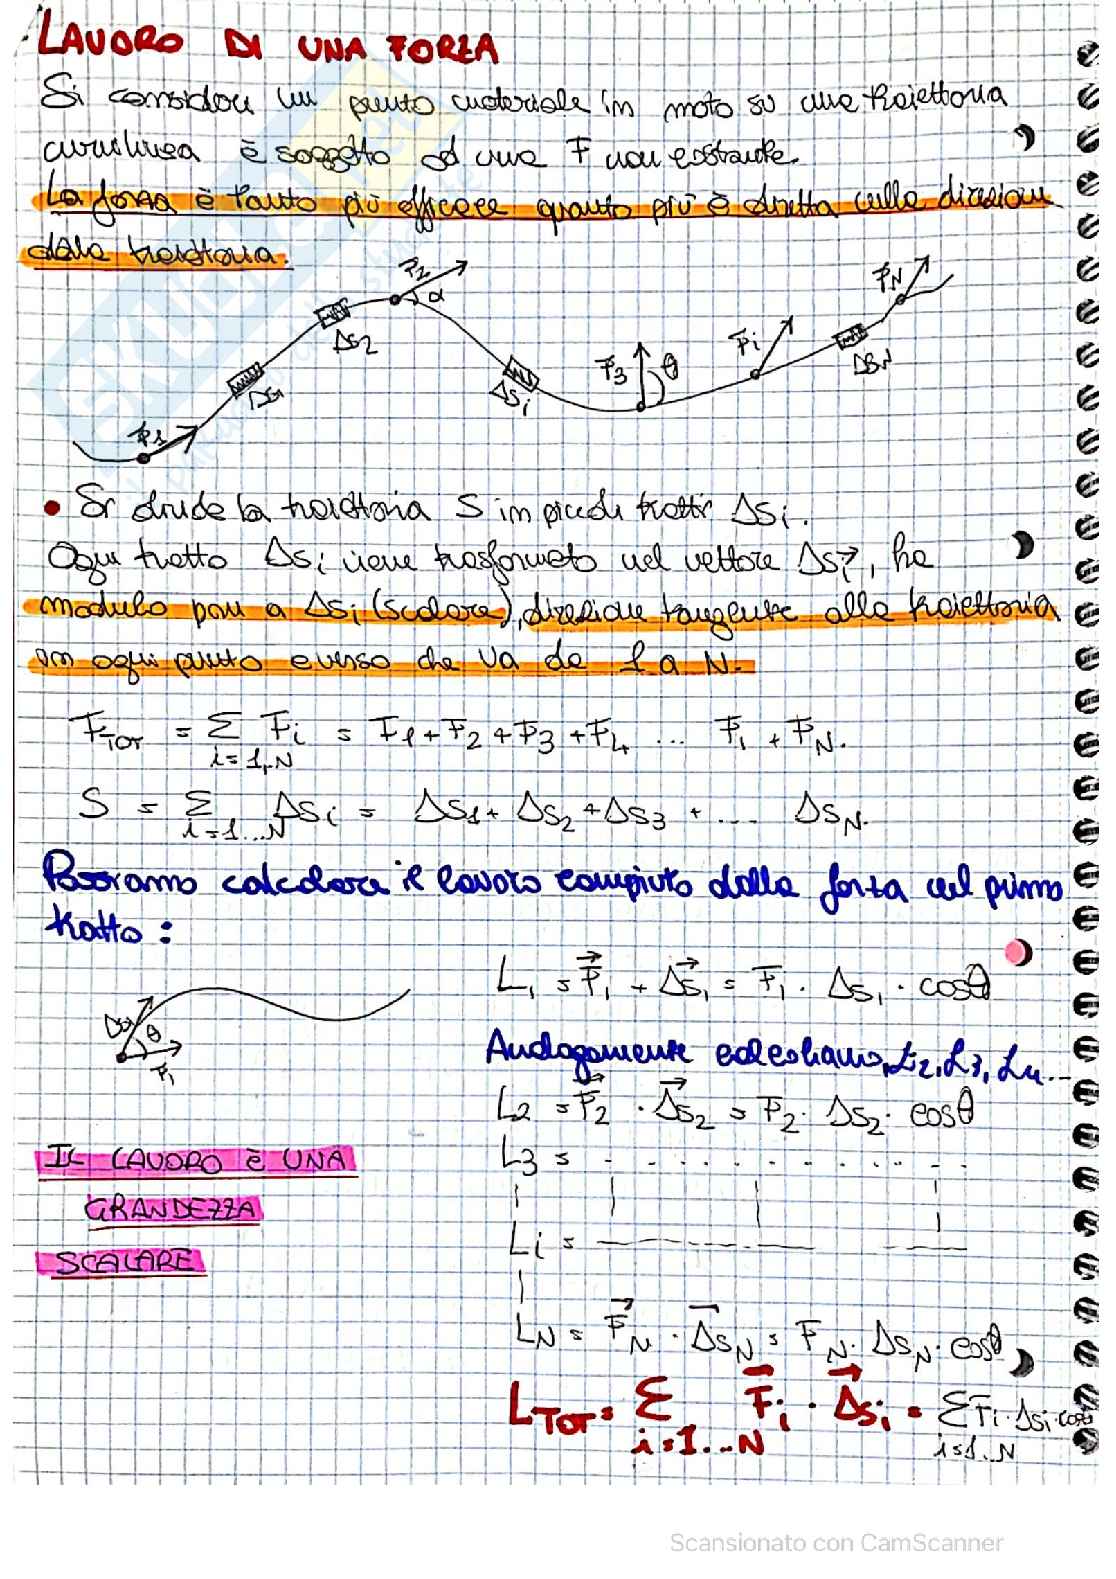 LAVORO DI UNA FORZA
Si consideri un punto materiale in moto su una traiettoria
curvilinea è soggetto ad una F non costante.
La forza è tanto più efficace quanto più è diretta nella direzione
della traiettoria.
F1 Δs1 Δs2 F2 α Δsi F3 θ Fi ΔsN FN
• Si divide la traiettoria S in piccoli tratti Δsi.
Ogni tratto Δsi viene trasformato nel vettore Δsi, ha
modulo pari a Δsi (scalare), direzione tangente alla traiettoria
in ogni punto e verso che va da 1 a N.
FTOT = Σ Fi = F1 + F2 + F3 + F4 ... Fi + FN.
i=1,N
S = Σ Δsi = Δs1 + Δs2 + Δs3 + .... ΔsN.
i=1...N
Possiamo calcolare il lavoro compiuto dalla forza nel primo
tratto:
L1 = F1 + Δs1 = F1 · Δs1 · cosθ
Δs1 θ F1
Analogamente calcoliamo, L2, L3, L4...
L2 = F2 · Δs2 = F2 · Δs2 · cosθ
L3 = - . . . . . . . . .
IL LAVORO È UNA
GRANDEZZA
SCALARE
Li =
LN = FN · ΔsN = FN · ΔsN · cosθ
LTOT = Σ Fi · Δsi = ΣFi · Δsi · cosθ
i=1...N i=1..N
Scansionato con CamScanner